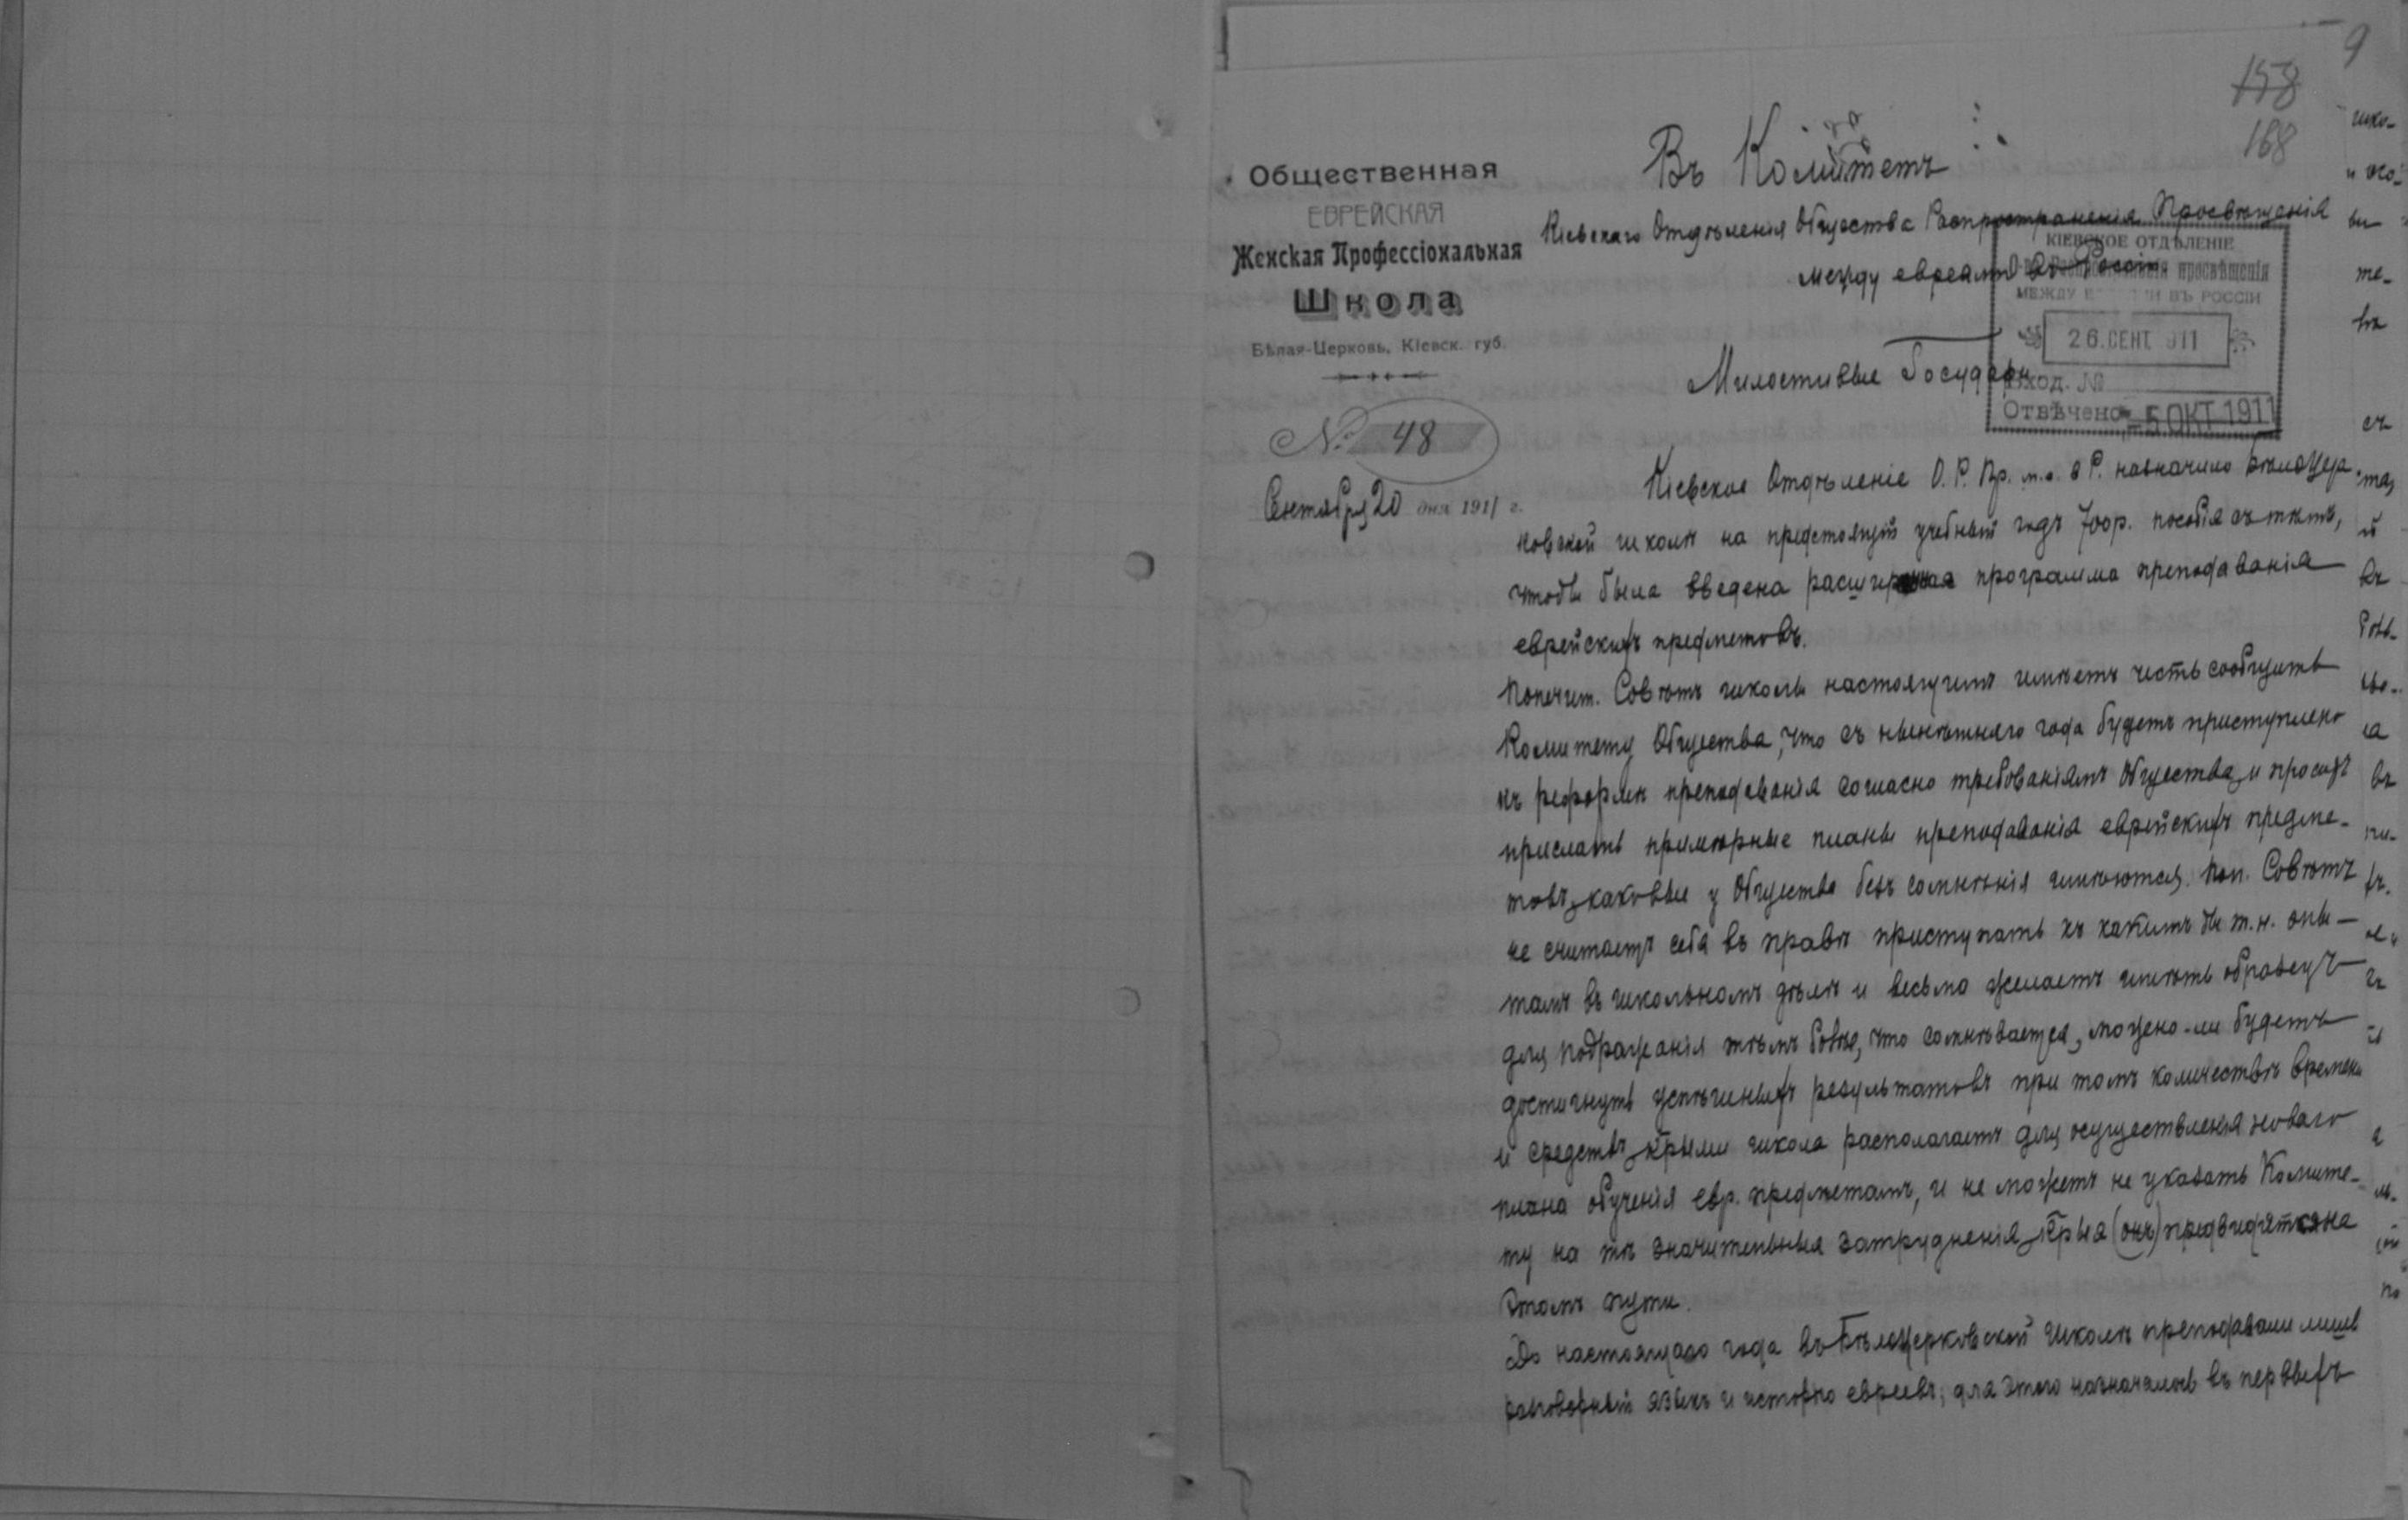 9
158
168
Общественная
ЕВРЕЙСКАЯ
Женская Профессіональная
Школа
Бѣлая-Церковь, Кіевск. губ.
№ 48
Сентября 20 дня 1911 г.
Въ Комитетъ
Кіевскаго Отдѣленія Общества Распространенія Просвѣщенія
между евреями въ Россіи
КІЕВСКОЕ ОТДѢЛЕНІЕ
О-ва Распространенія просвѣщенія
МЕЖДУ ЕВРЕЯМИ ВЪ РОССІИ
26.СЕНТ. 911
Вход. №
Отвѣчено -5 ОКТ 1911
Милостивые Государи
Кіевское Отдѣленіе О. Р. Пр. м. е. в Р. назначило Бѣлоцер
ковской школѣ на предстоящій учебный годъ 700р. пособія съ тѣмъ,
чтобы была введена программа преподаванія
еврейскихъ предметовъ.
Попечит. Совѣтъ школы настоящимъ имѣетъ честь сообщить
Комитету Общества, что съ нынѣшняго года будетъ приступлено
къ реформѣ преподаванія согласно требованіямъ Общества, и проситъ
прислать примѣрные планы преподаванія еврейскихъ предме-
товъ, каковые у Общества безъ сомнѣнія имѣются. Поп. Совѣтъ
не считаетъ себя въ правѣ приступать къ какимъ бы т. н. опы-
тамъ въ школьномъ дѣлѣ и весьма желаетъ имѣть образецъ
для подражанія тѣмъ болѣе, что сомнѣвается, можно-ли будетъ
достигнуть успѣшныхъ результатовъ при томъ количествѣ времени
и средствъ, к͞рыми школа располагаетъ для осуществленія новаго
плана обученія евр. предметамъ, и не можетъ не указать Комите-
ту на тѣ значительныя затрудненія, к͞рыя (онъ) предвидятся на
этомъ пути.
До настоящаго года въ Бѣлоцерковской школѣ преподавали лишь
разговорный языкъ и исторію евреевъ; для этого назначалось въ первыхъ